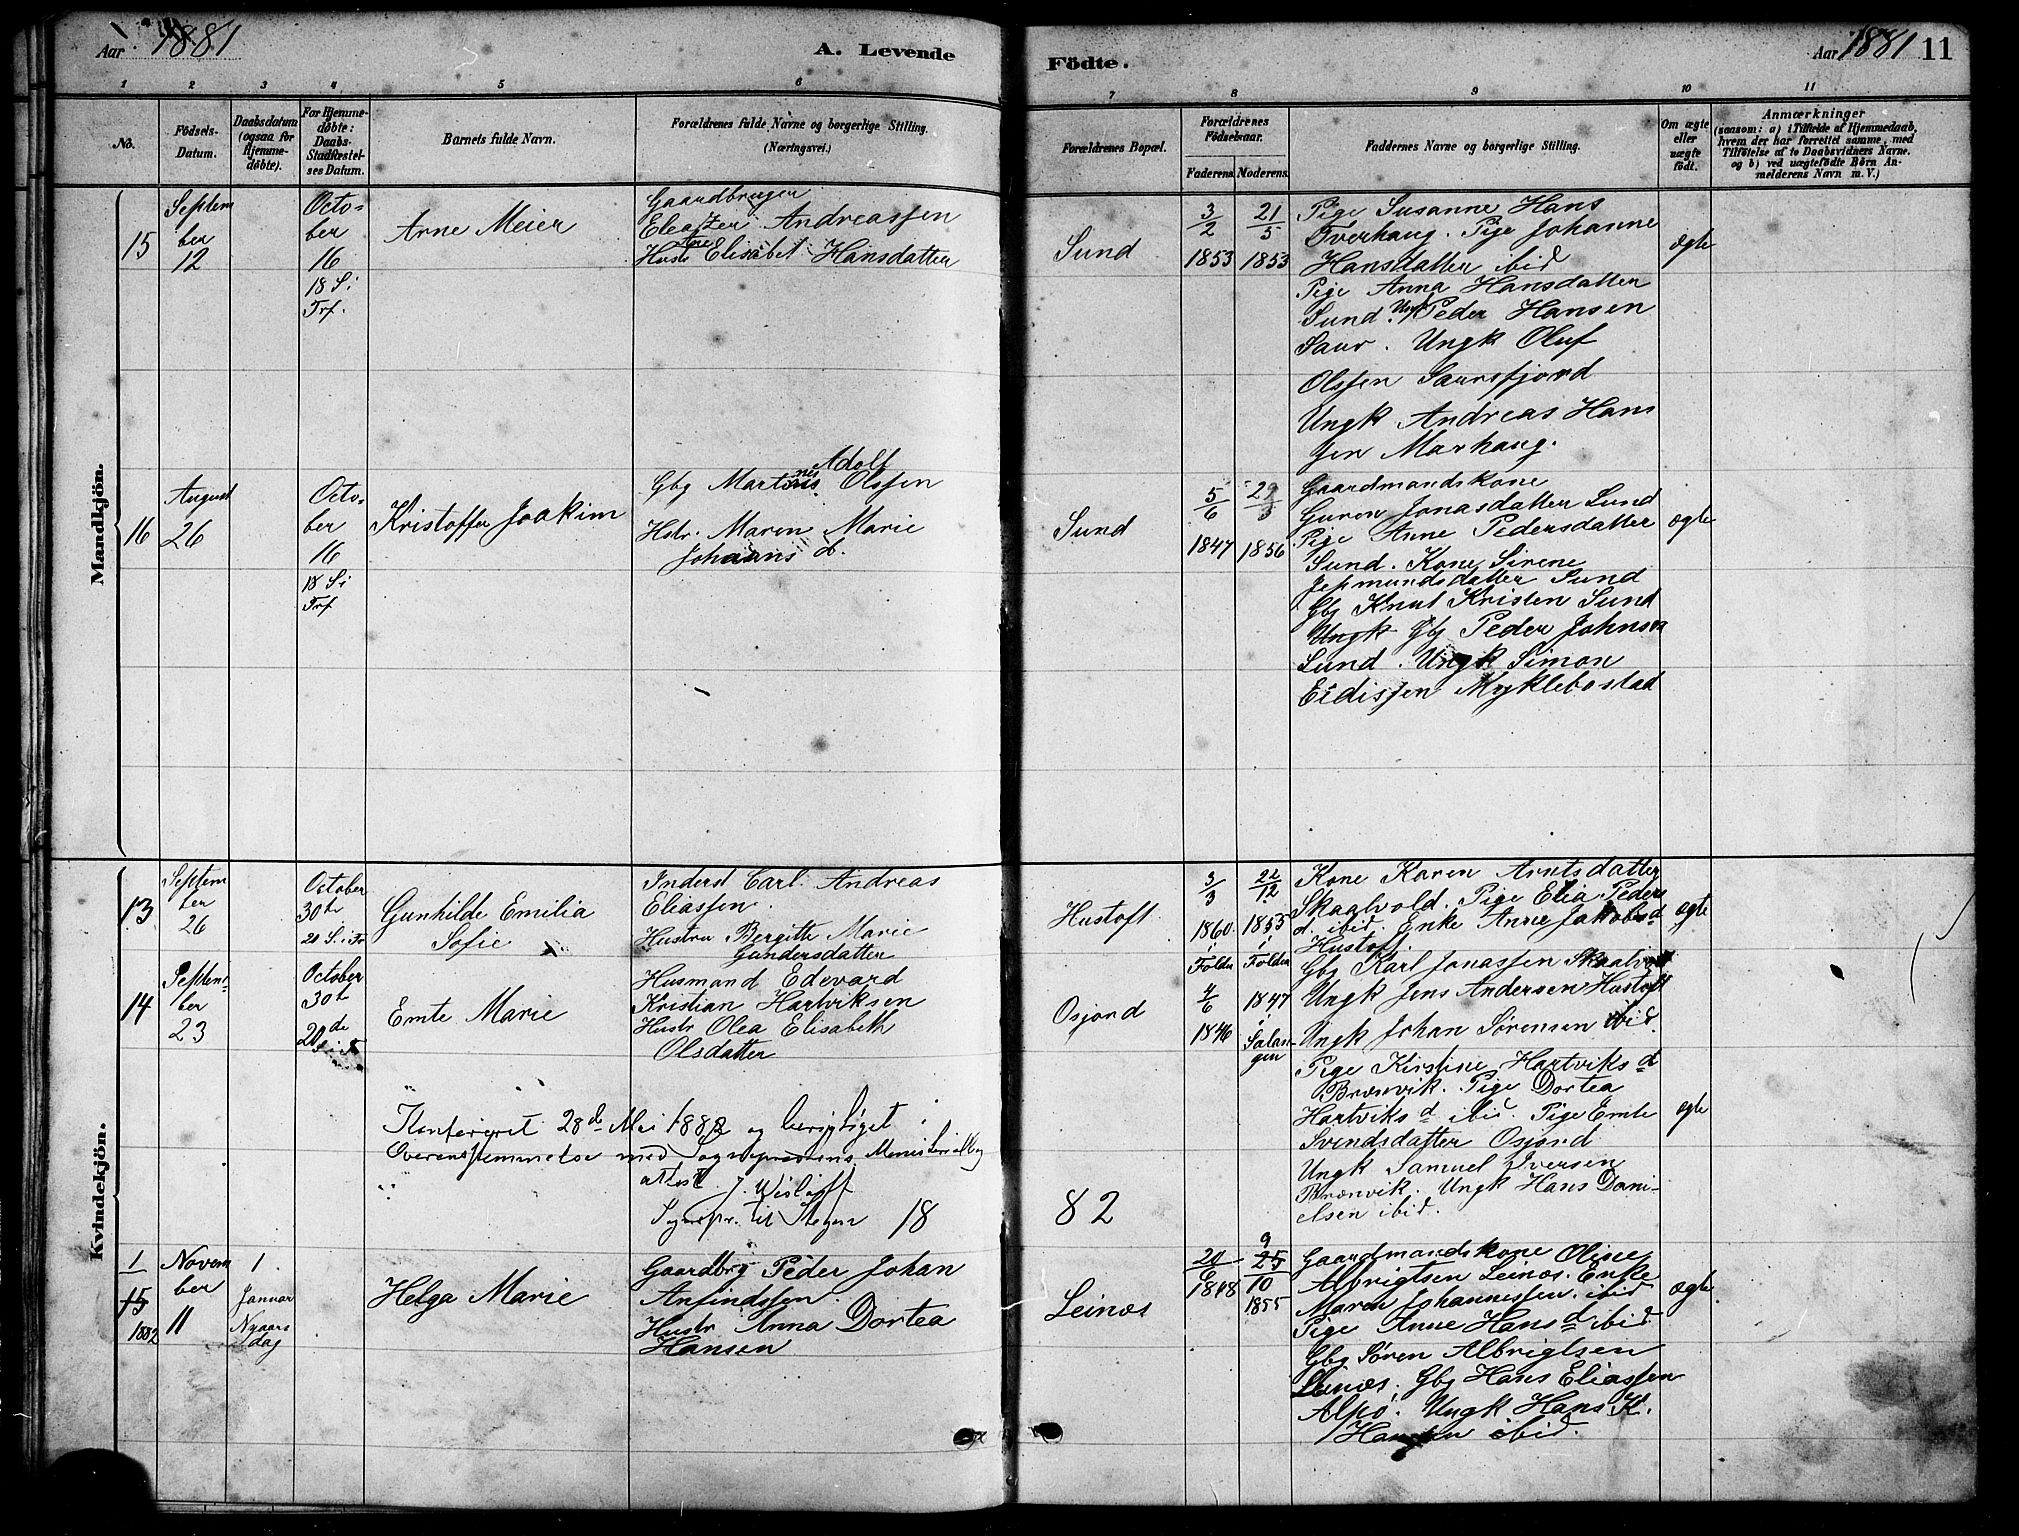 Aar 1881
A. Levende
Födte.
Aar 1881
11
1 2 3 4 5 6 7 8 9 10 11
No.
Födsels-
Datum.
Daabsdatum
(ogsaa for
Hjemme-
døbte).
For Hjemme-
døbte:
Daabs-
Stadfæstel-
ses Datum.
Barnets fulde Navn.
Forældrenes fulde Navne og borgerlige Stilling.
(Næringsvei.)
Forældrenes Bopæl.
Forældrenes
Födselsaar.
Faderens. Moderens.
Faddernes Navne og borgerlige Stilling.
Om ægte
eller
uægte
født.
Anmærkninger
(saasom: a) i Tilfælde af Hjemmedaab,
hvem der har forrettet samme, med
Tilföielse af to Daabsvidners Navne.
og b) ved uægtefödte Börn An-
melderens Navn m. V.)
Mandkjön.
15
Septem
ber
12
Octo-
ber
16
18 S. i
Trf.
Arne Meier
Gaardbruger
Eleazer Andreassen
Hustr Ane Elisabet Hansdatter
Sund
3/2
1853
21/5
1853
Pige Susanne Hans
Tverhaug. Pige Johanne
Hansdatter ibid
Pige Anna Hansdatter
Sund. Ungk Peder Hansen
Saur. Ungk Oluf
Olssen Saursfjord
Ungk Andreas Hans
sen Marhaug.
ægte
16
August
26
Octo-
ber
16
18 S. i
Trf
Kristoffer Joakim
Adolf
Gbg Martines Olssen
Hstr. Maren Marie
Johanns d.
Sund
5/6
1847
29/3
1856
Gaardmandskone
Guren Jonasdatter Sund
Pige Anne Pedersdatter
Sund. Kone Sirene
Jermundsdatter Sund
Gbg Knut Kristen Sund
Ungk Gbg Peder Johnsen
Sund. Ungk Simon
Eidissen Myklebostad
ægte
Kvindekjön.
13
Septem
ber
26
October
30te
20 S. i Tr
Gunhilde Emilia
Sofie
Inderst Carl Andreas
Eliassen.
Hustru Bergitte Marie
Gundersdatter
Hustoft
3/3
1860
i
Folden
22/12
1855
i
Folden
Kone Karen Arntsdatter
Skaalvold. Pige Elia Peders
d. ibid. Enke Anne Jakobsd
Hustoft.
Gbg Karl Jonassen Skaalvold
Ungk Jens Andersen Hustoft
Ungk Johan Sørensen ibid.
ægte
14
Septem-
ber
23
October
30te
20de
S. i Tr
Emte Marie
Husmand Edevard
Kristian Hartviksen
Hustr Olea Elisabeth
Olsdatter
Osjord
4/6
1846
1847
i
Salan-
gen
Pige Kirstine Hartviks d
Brænvik. Pige Dortea
Hartviks d ibid. Pige Emte
Svendsdatter Osjord
Ungk Samuel Iversen
Brænvik. Ungk Hans Dani-
elsen ibid.
ægte
Konfereret 28de Mai 1882 og berigtiget i
Overensstemmelse med Sognepræstens Ministerialbog
attest. J. Wisløff
Sognepr. til Stegen 18
82
1
15
1882
Novem
ber
11
1.
Januar
Nyaars
dag
Helga Marie
Gaardbrg Peder Johan
Anfindssen
Hustr Anna Dortea
Hansen
Leines
20/6
1848
9
25/10
1855
Gaardmandskone Oline
Albrigtsen Leines. Enke
Maren Johannessen. ibid
Pige Anne Hans d ibid
Gbg Søren Albrigtsen
Leines. Gbg Hans Eliassen
Alpø. Ungk Hans K.
Hansen ibid.
ægte.